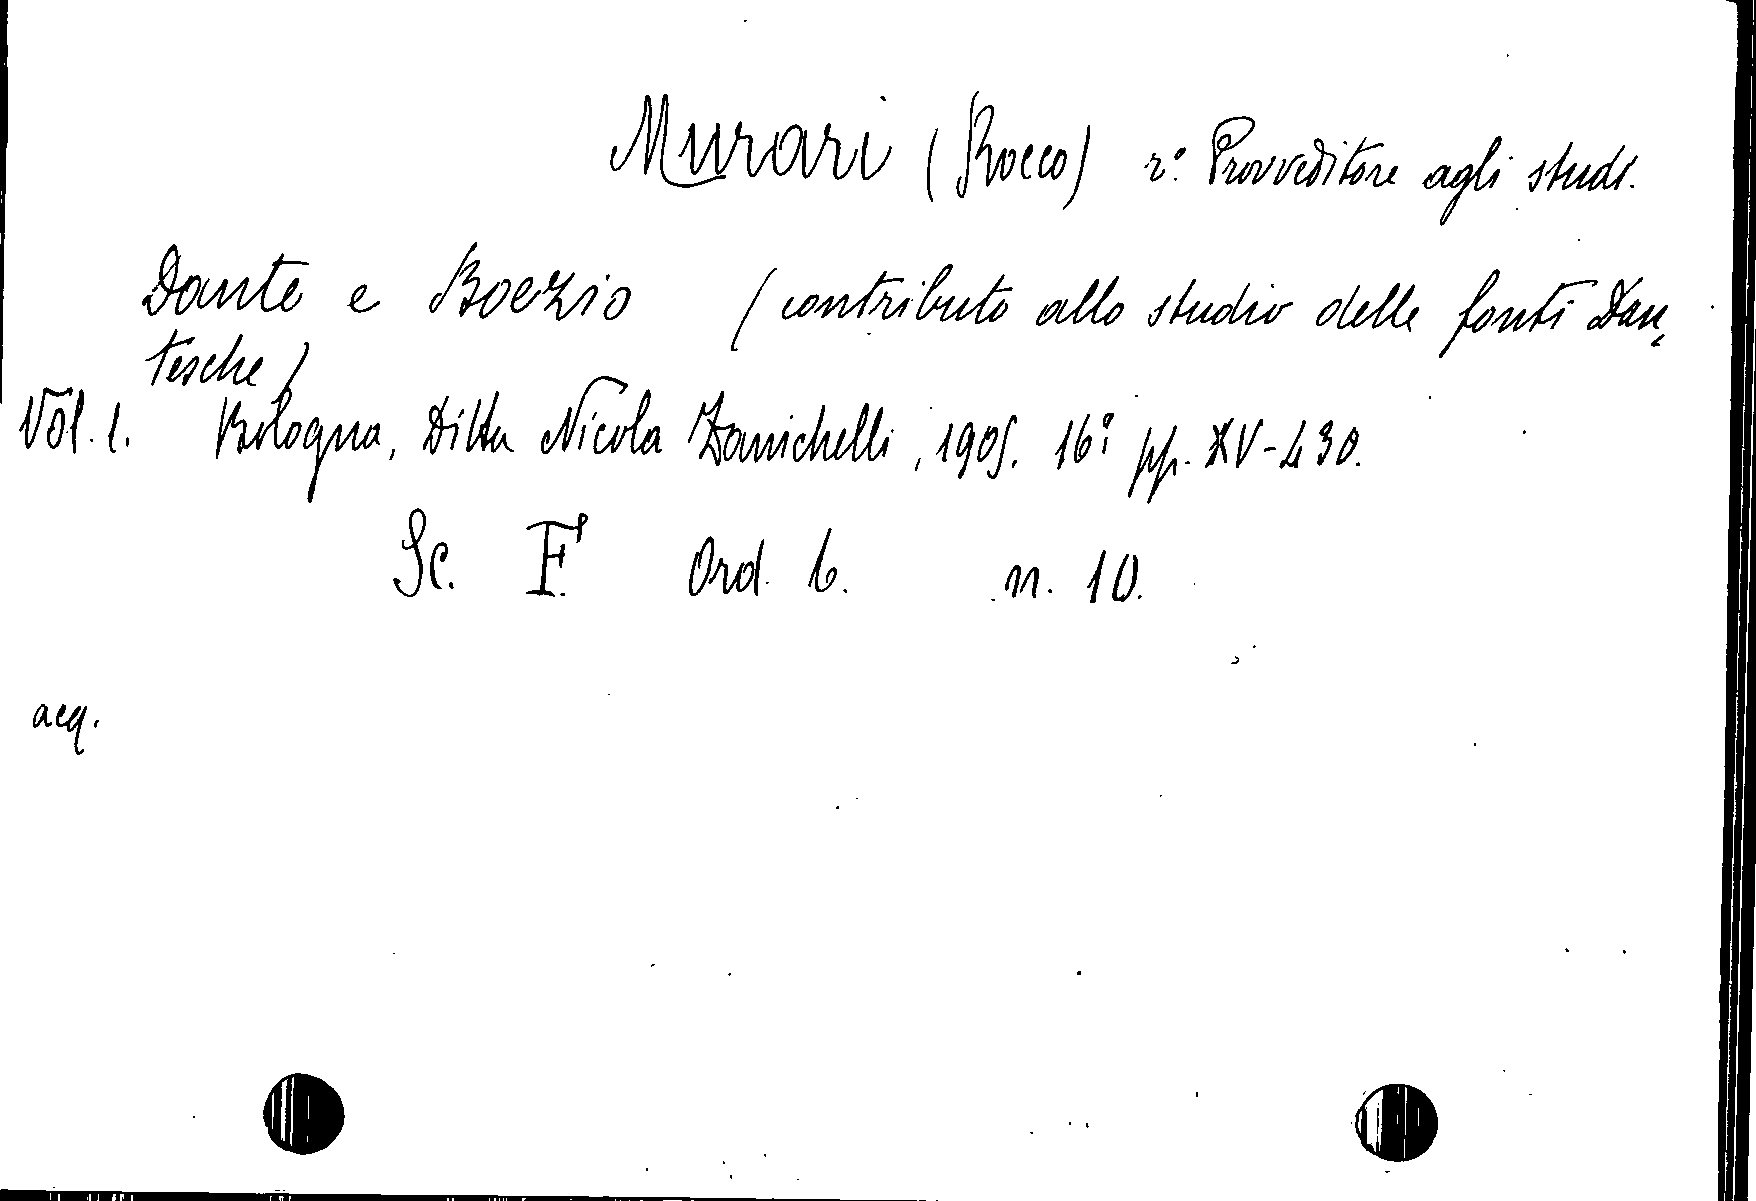 Murari (Rocco) r.º Provveditore agli studi.
Dante e Boezio (contributo allo studio delle fonti Dan,
tesche)
Vol. 1. Bologna, Ditta Nicola Zanichelli, 1905. 16º pp. XV-430.
Sc. F. Ord. 6. n. 10.
acq.